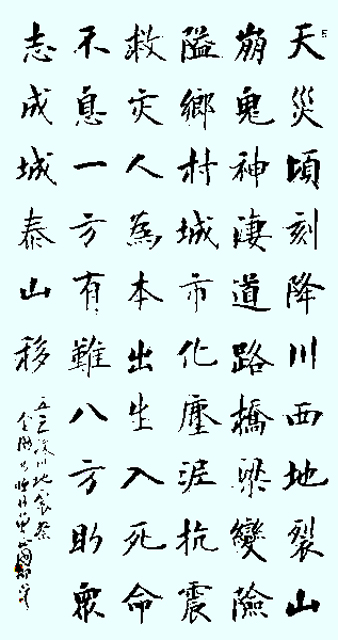 天災頃刻降川西地裂山
崩鬼神淒道路橋梁變險
隘鄉村城市化塵泥抗震
救灾人為本出生入死命
不息一方有難八方助眾
志成城泰山移